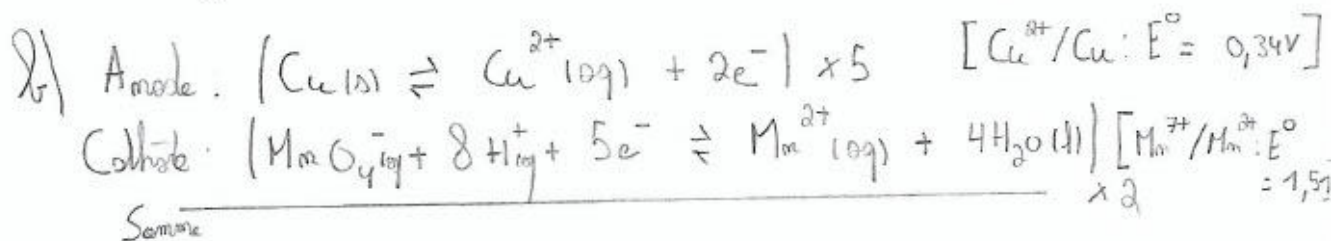 b) Anode : (Cu(s) ⇌ Cu²⁺(aq) + 2e⁻) x5 [Cu²⁺/Cu : E° = 0,34V]
Cathode : (MnO₄⁻(aq) + 8H⁺(aq) + 5e⁻ ⇌ Mn²⁺(aq) + 4H₂O(l)) x2 [Mn⁷⁺/Mn²⁺ : E° = 1,51
Somme